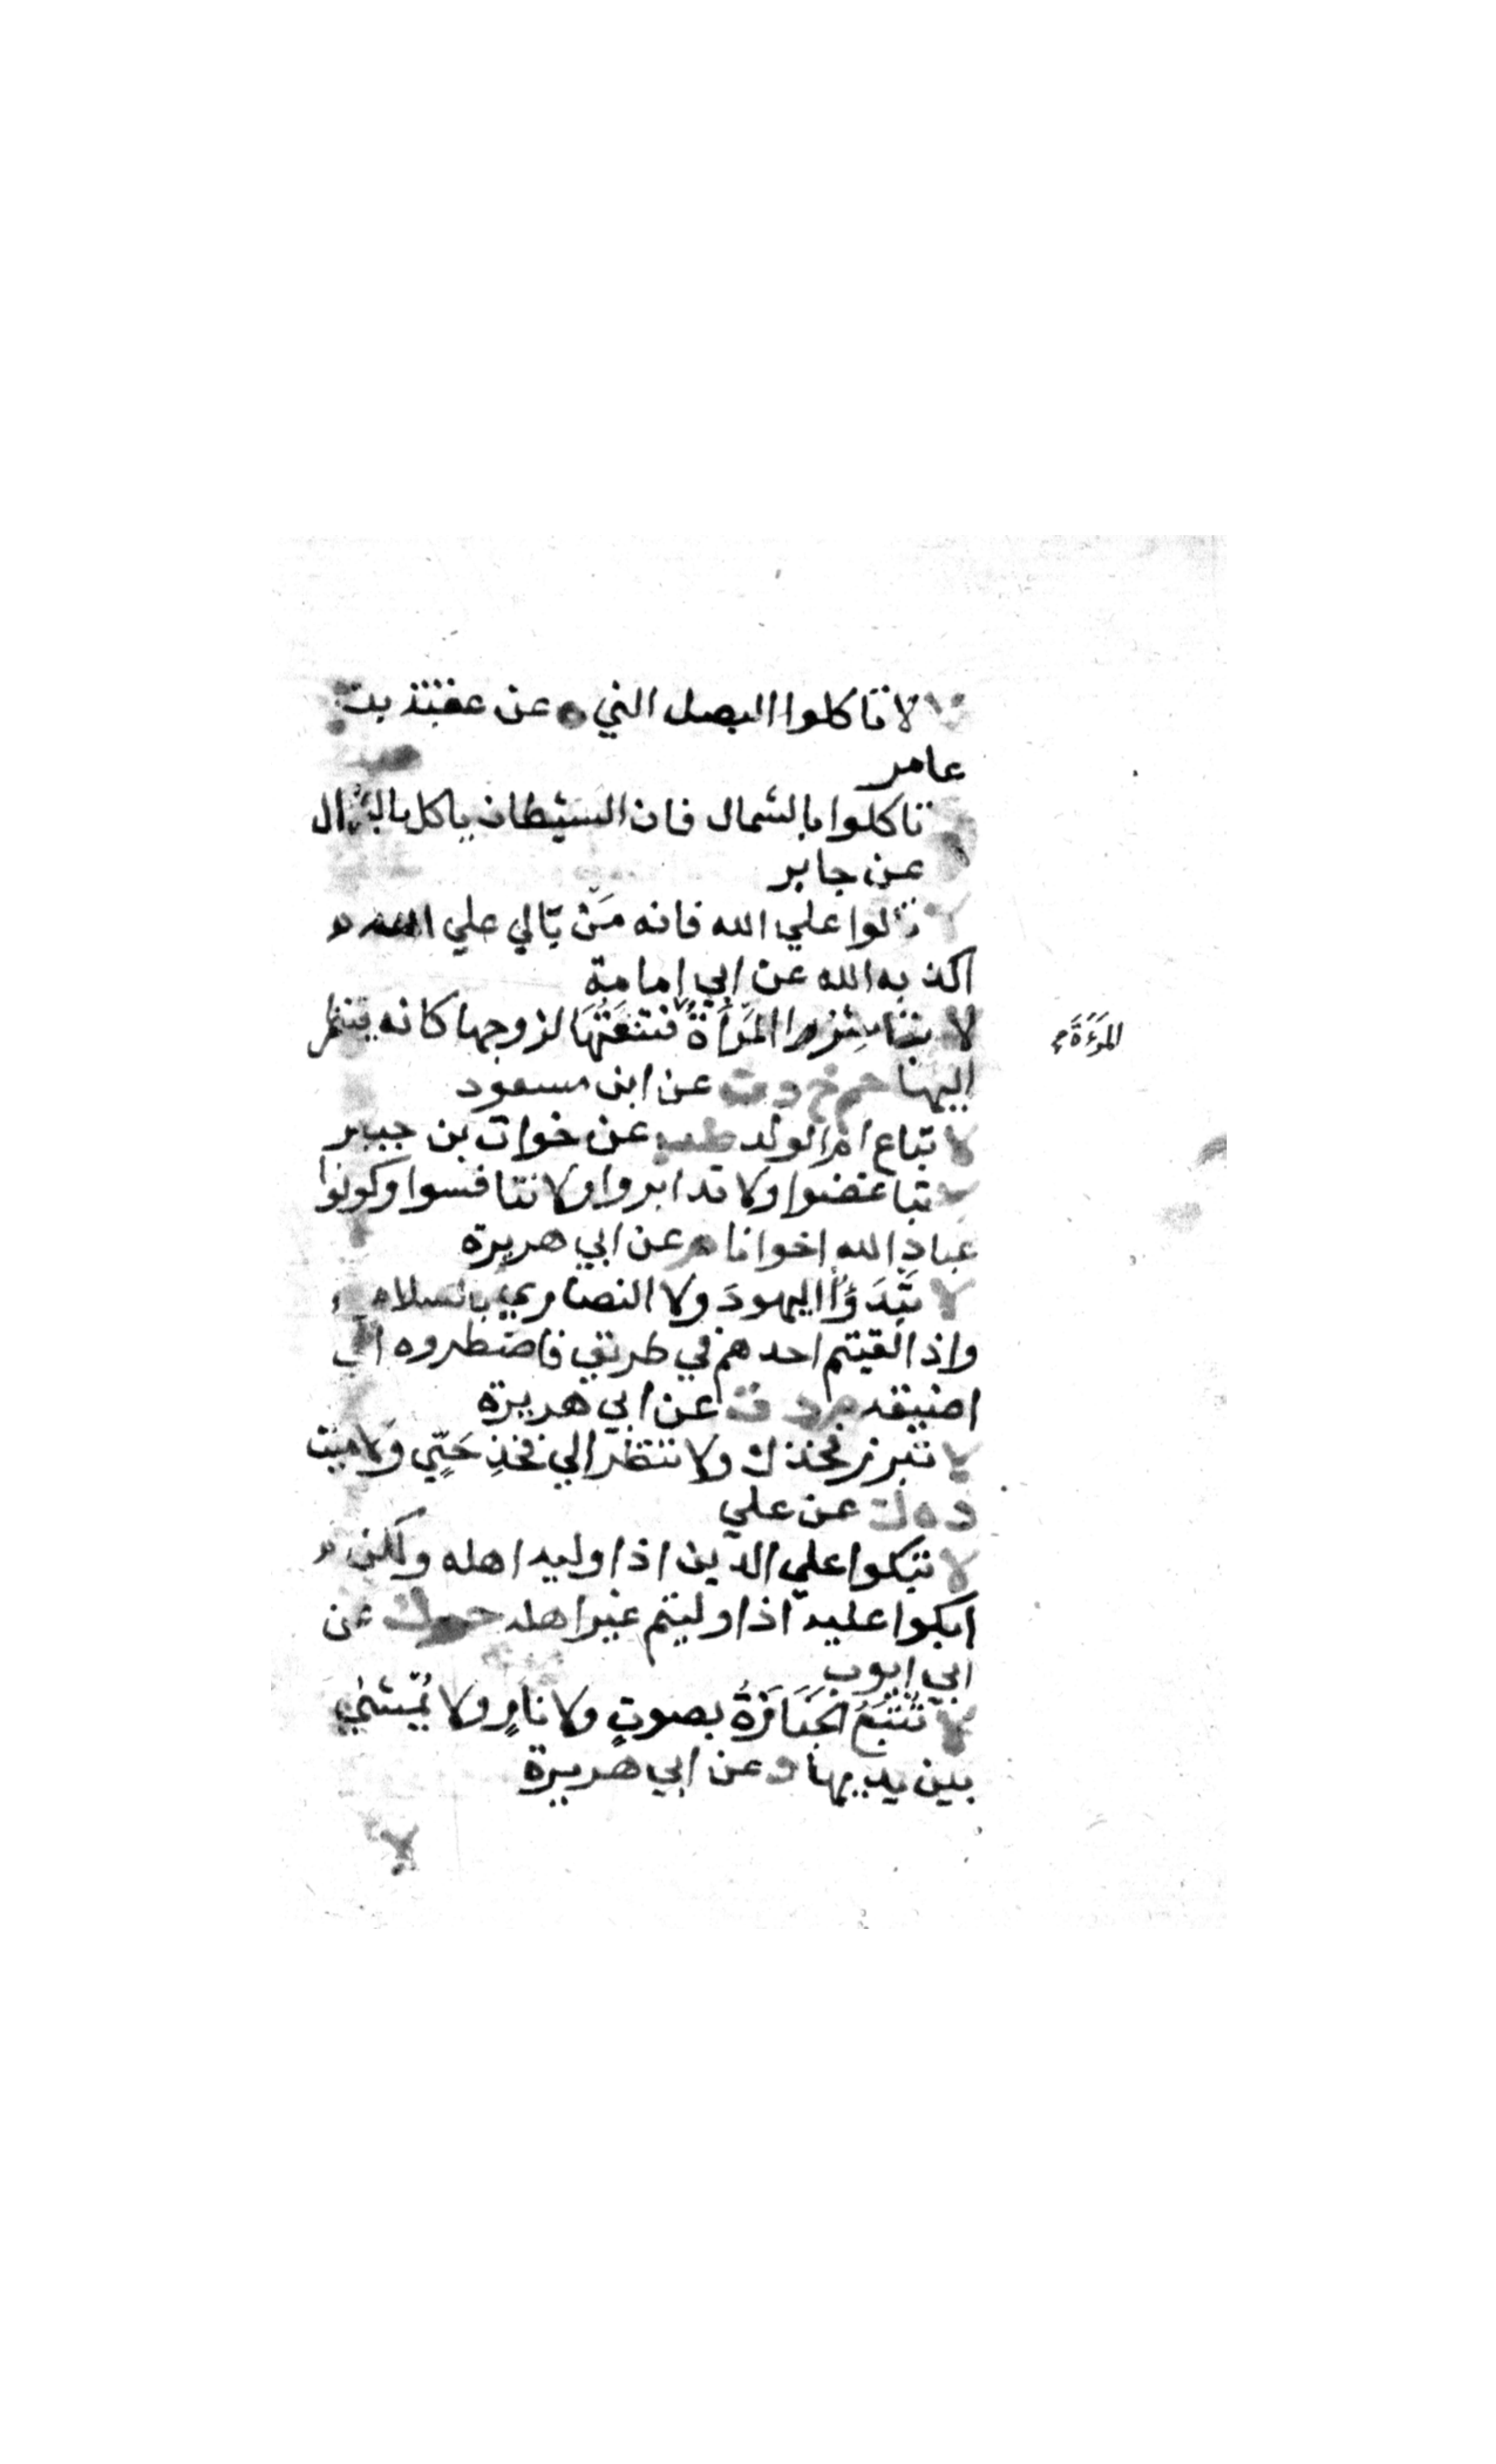 لا تاكلوا البصل الني ه عن عقبة بن
عامر
لا تاكلوا بالشمال فان الشيطان ياكل بالشمال
ه عن جابر
لا تالوا علي الله فانه مَنْ تالي علي الله
اكذبه الله عن ابي امامة
لا تباشر المَرْأَةُ فتنعَتُهَا لزوجها كانه ينظر
المَرْءَةَ
اليها حم خ د ت عن ابن مسعود
لا تباع ام الولد طب عن خوات بن جبير
لا تباغضوا ولا تدابروا ولا تتنافسوا وكونوا
عباد الله اخوانا م عن ابي هريرة
لا تَبْدَؤُا اليهودَ ولا النصاري بالسلام
واذا لقيتم احدهم في طريق فاضطروه الي
اضيقه م د ت عن ابي هريرة
لا تبرز فخذك ولا تنظر الي فخذِ حَيٍّ ولا ميت
د ه ك عن علي
لا تبكوا علي الدين اذا وليه اهله ولكن
ابكوا عليه اذا وليتم غير اهله حم ك عن
ابي ايوب
لا تُتْبَعُ الجَنَازَةُ بصوتٍ ولا نارٍ ولا يُمْشَي
بين يديها د عن ابي هريرة
لا